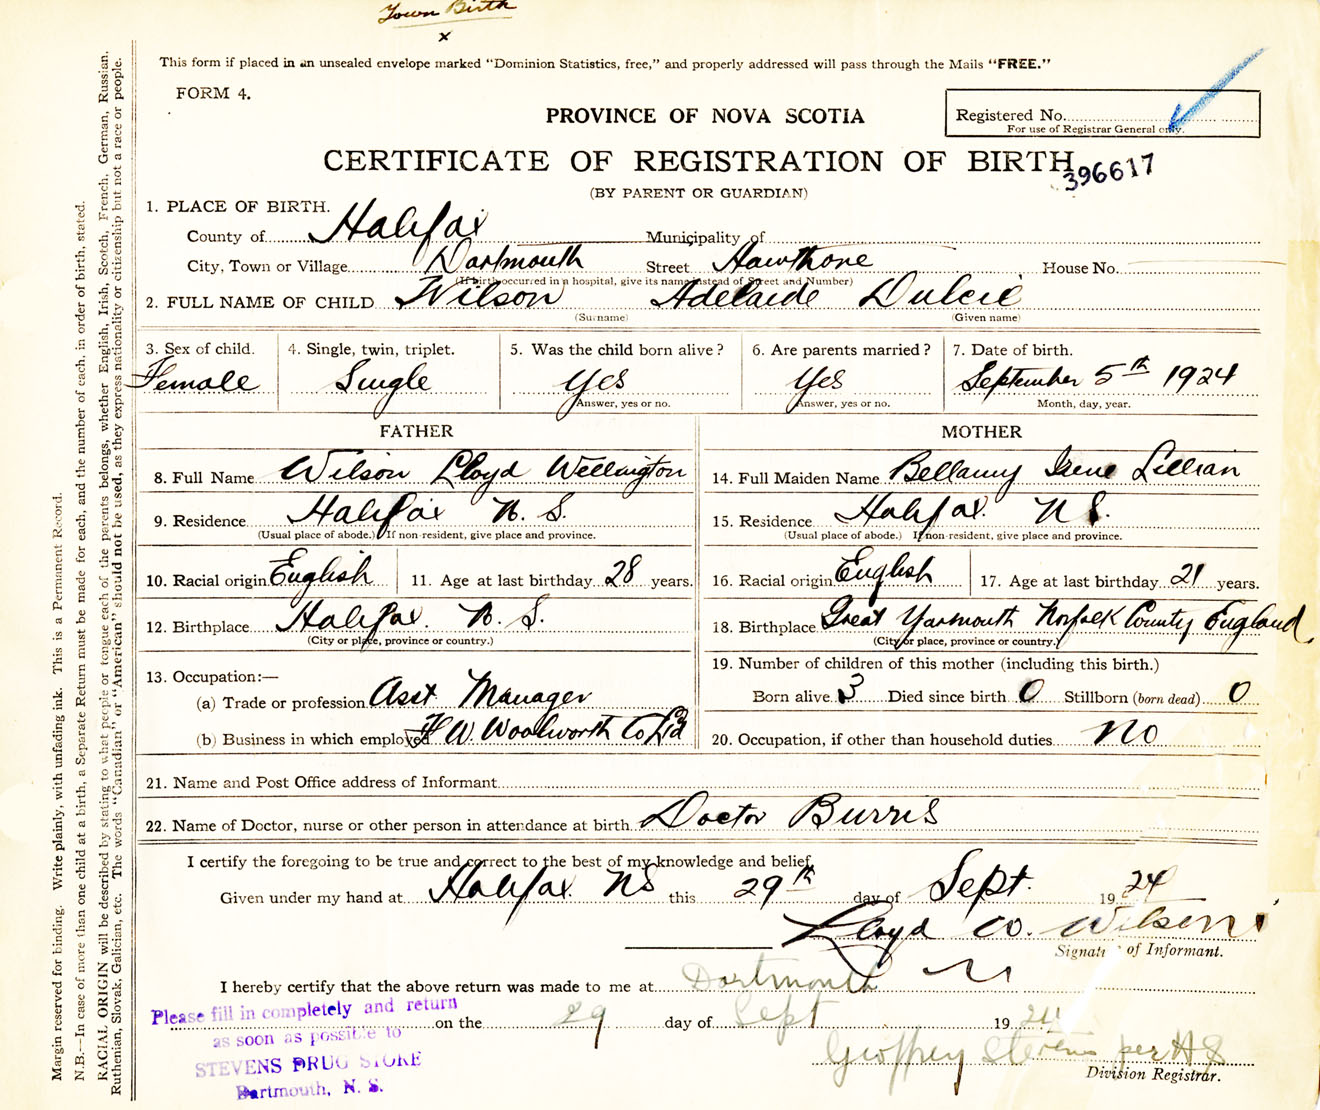 Town Birth
x
This form if placed in an unsealed envelope marked "Dominion Statistics, free," and properly addressed will pass through the Mails "FREE."
FORM 4.
PROVINCE OF NOVA SCOTIA
Registered No.
For use of Registrar General only.
CERTIFICATE OF REGISTRATION OF BIRTH
396617
(BY PARENT OR GUARDIAN)
1. PLACE OF BIRTH.
County of Halifax Municipality of
City, Town or Village Dartmouth Street Hawthorne House No.
(If birth occurred in a hospital, give its name instead of Street and Number)
2. FULL NAME OF CHILD Wilson Adelaide Dulcie
(Surname) (Given name)
3. Sex of child. 4. Single, twin, triplet. 5. Was the child born alive? 6. Are parents married? 7. Date of birth.
Female Single Yes Yes September 5th 1924
Answer, yes or no. Answer, yes or no. Month, day, year.
FATHER MOTHER
8. Full Name Wilson Lloyd Wellington 14. Full Maiden Name Bellamy Irene Lillian
9. Residence Halifax N. S. 15. Residence Halifax. N S.
(Usual place of abode.) If non-resident, give place and province. (Usual place of abode.) If non-resident, give place and province.
10. Racial origin English 11. Age at last birthday 28 years. 16. Racial origin English 17. Age at last birthday 21 years.
12. Birthplace Halifax. N. S. 18. Birthplace Great Yarmouth Norfolk County England.
(City or place, province or country.) (City or place, province or country.)
13. Occupation:— 19. Number of children of this mother (including this birth.)
(a) Trade or profession Asst Manager Born alive 3 Died since birth 0 Stillborn (born dead) 0
(b) Business in which employed F. W. Woolworth Co Ltd 20. Occupation, if other than household duties No
21. Name and Post Office address of Informant
22. Name of Doctor, nurse or other person in attendance at birth. Doctor Burris
I certify the foregoing to be true and correct to the best of my knowledge and belief.
Given under my hand at Halifax NS this 29th day of Sept. 1924
Lloyd W. Wilson
Signature of Informant.
I hereby certify that the above return was made to me at Dartmouth
on the 29 day of Sept 1924
Geoffrey Stevens per
Division Registrar.
Please fill in completely and return
as soon as possible to
STEVENS DRUG STORE
Dartmouth, N. S.
Margin reserved for binding. Write plainly, with unfading ink. This is a Permanent Record.
N.B.—In case of more than one child at a birth, a Separate Return must be made for each, and the number of each, in order of birth, stated.
RACIAL ORIGIN will be described by stating to what people or tongue each of the parents belongs, whether English, Irish, Scotch, French, German, Russian,
Ruthenian, Slovak, Galician, etc. The words "Canadian" or "American" should not be used, as they express nationality or citizenship but not a race or people.